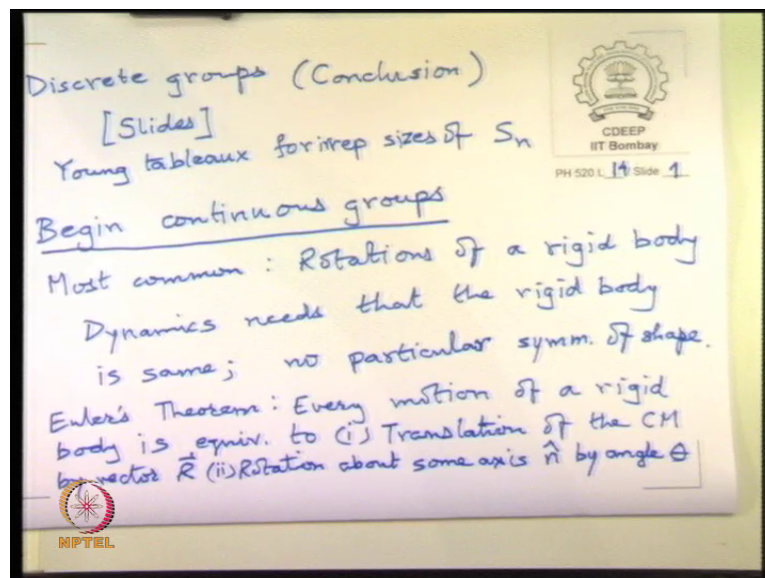 Discrete groups (Conclusion)
[Slides]
Young tableaux for irrep sizes of Sn
CDEEP
IIT Bombay
PH 520 L 14 / Slide 1
Begin continuous groups
Most common : Rotations of a rigid body
Dynamics needs that the rigid body
is same; no particular symm. of shape.
Euler's Theorem : Every motion of a rigid
body is equiv. to (i) Translation of the CM
by vector R⃗ (ii) Rotation about some axis n̂ by angle θ
NPTEL